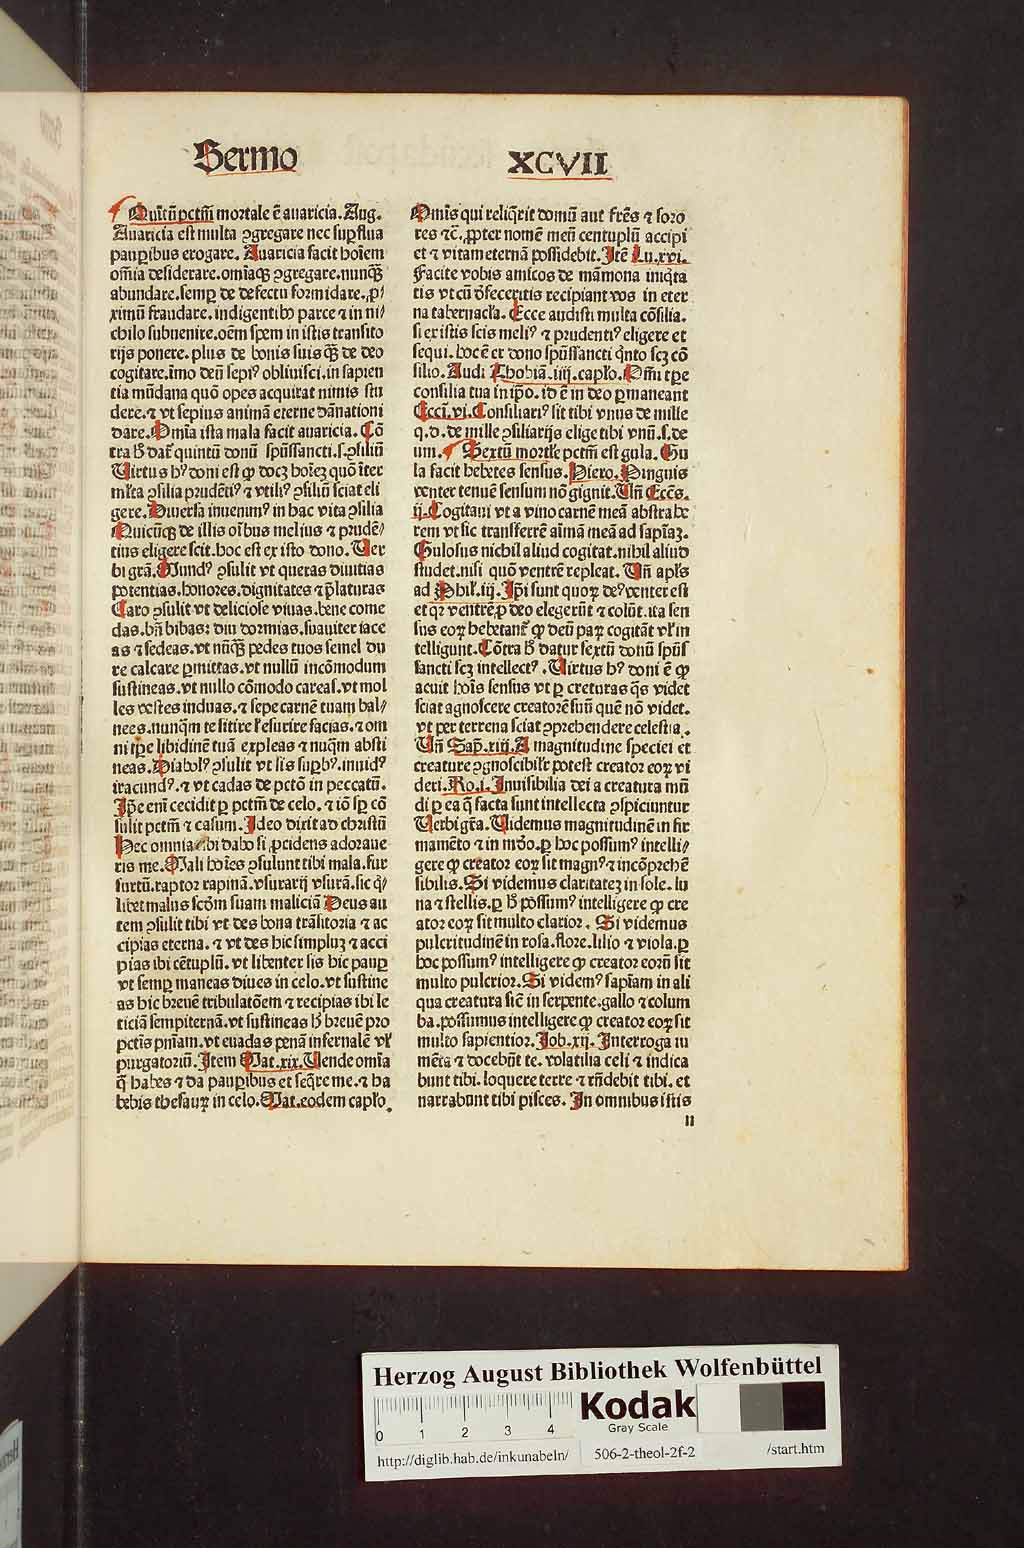 Sermo
XCVII
Quītū pctm̄ mortale ē auaricia. Aug.
Auaricia est multa ꝯgregare nec suꝑflua
pauꝑibus erogare. Auaricia facit hoīem
om̄ia desiderare. om̄iaqꝫ ꝯgregare. nunqꝫ̄
abundare. semꝑ de defectu formidare. ꝓ/
ximū fraudare. indigentibꝰ parce ⁊ in ni/
chilo subuenire. oēm spem in istis transito
rijs ponere. plus de bonis suis qꝫ̄ de deo
cogitare. īmo deū sepiꝰ obliuisci. in sapien
tia mūdana quō opes acquirat nimis stu
dere. ⁊ vt sepius animā eterne dānationi
dare. Om̄ia ista mala facit auaricia. Cō
tra h̄ datᷣ quintū donū spūssancti. s. ꝯsiliū
Uirtus hꝰ doni est ꝙ docꝫ hoīeꝫ quō īter
ml̄ta ꝯsilia prudētiꝰ ⁊ vtiliꝰ ꝯsiliū sciat eli
gere. Diuersa inuenimꝰ in hac vita ꝯsilia
Quicūqꝫ de illis oībus melius ⁊ prudē/
tius eligere scit. hoc est ex isto dono. Uer
bi grā. Mundꝰ ꝯsulit vt queras diuitias
potentias. honores. dignitates ⁊ p̄laturas
Caro ꝯsulit vt deliciose viuas. bene come
das. bn̄ bibas: diu dormias. suauiter iace
as ⁊ sedeas. vt nūqꝫ̄ pedes tuos semel du
re calcare ꝑmittas. vt nullū incōmodum
sustineas. vt nullo cōmodo careas. vt mol
les vestes induas. ⁊ sepe carnē tuam bal/
nees. nunqm̄ te sitire l̓ esurire facias. ⁊ om
ni tꝑe libidinē tuā expleas ⁊ nuqm̄ absti
neas. Diabolꝰ ꝯsulit vt sis suꝑbꝰ. inuidꝰ
iracundꝰ. ⁊ vt cadas de pctō in peccatū.
Ip̄e enī cecidit ꝑ pctm̄ de celo. ⁊ iō sꝑ cō
sulit pctm̄ ⁊ casum. Ideo dixit ad christū
Hec omnia tibi dabo si ꝓcidens adoraue
ris me. Mali hoīes ꝯsulunt tibi mala. fur
furtū. raptor rapinā. vsurarij vsurā. sic q̄/
libet malus scdm̄ suam maliciā Deus au
tem ꝯsulit tibi vt des bona trāsitoria ⁊ ac
cipias eterna. ⁊ vt des hic simpluꝫ ⁊ acci
pias ibi cētuplū. vt libenter sis hic pauꝑ
vt semꝑ maneas diues in celo. vt sustine
as hic breuē tribulatōem ⁊ recipias ibi le
ticiā sempiternā. vt sustineas h̄ breuē pro
pctīs pniam. vt euadas penā infernalē vl̓
purgatoriū. Item Mat. xix. Uende om̄ia
q̄ habes ⁊ da pauꝑibus et seq̄re me. ⁊ ha
bebis thesauꝝ in celo. Mat. eodem capl̓o.
Omīs qui reliq̄rit domū aut fr̄es ⁊ soro
res ⁊c̄. ꝓpter nomē meū centuplū accipi
et ⁊ vitam eternā possidebit. Itē Lu. xvi.
Facite vobis amicos de māmona iniq̄ta
tis vt cū d̓feceritis recipiant vos in eter
na tabernacl̓a. Ecce audisti multa cōsilia.
si ex istis scis meliꝰ ⁊ prudentiꝰ eligere et
sequi. hoc ē ex dono spūssancti q̄nto scꝫ cō
silio. Audi Thobiā. iiij. capl̓o. Om̄i tꝑe
consilia tua in ip̄o. id ē in deo ꝑmaneant
Eccī. vi. Consiliariꝰ sit tibi vnus de mille
q. d. de mille ꝯsiliarijs elige tibi vnū. s. de
um. Sextū mortl̓e pctm̄ est gula. Gu
la facit hebetes sensus. Hiero. Pinguis
venter tenuē sensum nō gignit. Un̄ Ecces.
ij. Cogitaui vt a vino carnē meā abstrahe
rem vt sic transferrē aīmā meā ad sapīaꝫ.
Gulosus nichil aliud cogitat. nihil aliud
studet. nisi quō ventrē repleat. Un̄ apl̓s
ad Phil̓. iij. Ip̄i sunt quoꝝ deꝰ venter est
et qꝛ ventrē ꝓ deo elegerūt ⁊ colūt. ita sen
sus eoꝝ hebetantᷣ ꝙ deū paꝝ cogitāt vl̓ in
telligunt. Cōtra h̄ datur sextū donū spūs
sancti scꝫ intellectꝰ. Uirtus hꝰ doni ē ꝙ
acuit hoīs sensus vt ꝑ creturas q̄s videt
sciat agnoscere creatorē suū quē nō videt.
vt per terrena sciat ꝯprehendere celestia.
Un̄ Sap̄. xiij. A magnitudine speciei et
creature ꝯgnoscibilr̄ potest creator eoꝝ vi
deri. Ro. i. Inuisibilia dei a creatura mū
di ꝑ ea q̄ facta sunt intellecta ꝯspiciuntur
Uerbi gr̄a. Uidemus magnitudinē in fir
mamēto ⁊ in mūo. ꝑ hoc possumꝰ intelli/
gere ꝙ creator eoꝝ sit magnꝰ ⁊ incōprehē
sibilis. Si videmus claritateꝫ in sole. lu
na ⁊ stellis. ꝑ h̄ possumꝰ intelligere ꝙ cre
ator eoꝝ sit multo clarior. Si videmus
pulcritudinē in rosa. flore. lilio ⁊ viola. ꝑ
hoc possumꝰ intelligere ꝙ creator eorū sit
multo pulcrior. Si videmꝰ sapīam in ali
qua creatura sic̄ in serpente. gallo ⁊ colum
ba. possumus intelligere ꝙ creator eoꝝ sit
multo sapientior. Job. xij. Interroga iu
mēta ⁊ docebūt te. volatilia celi ⁊ indica
bunt tibi. loquere terre ⁊ rn̄debit tibi. et
narrabunt tibi pisces. In omnibus istis
II
Herzog August Bibliothek Wolfenbüttel
0 1 2 3 4
Kodak
Gray Scale
http://diglib.hab.de/inkunabeln/ 506-2-theol-2f-2 /start.htm